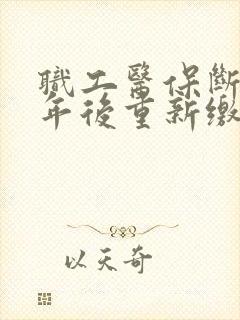 職工醫保斷
年後重新繳
以天奇